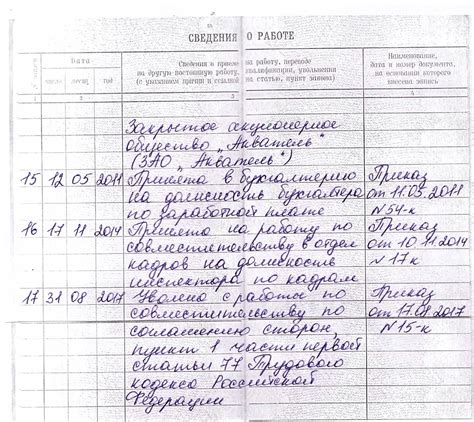 СВЕДЕНИЯ О РАБОТЕ
Дата
число месяц год
Сведения о приеме на работу, переводе
на другую постоянную работу, квалификации, увольнении
(с указанием причин и ссылкой на статью, пункт закона)
Наименование,
дата и номер документа,
на основании которого
внесена запись
1 2 3 4
Закрытое акционерное
общество „Акватель"
(ЗАО „Акватель")
15 12 05 2011 Принята в бухгалтерию Приказ
на должность бухгалтера от 11.05.2011
по заработной плате N54-к
16 17 11 2014 Принята на работу по Приказ
совместительству в отдел от 10.11.2014
кадров на должность N17к
инспектора по кадрам
17 31 08 2017 Уволена с работы по Приказ
совместительству по от 17.08.2017
соглашению сторон, N15-к
пункт 1 части первой
статьи 77 Трудового
кодекса Российской
Федерации